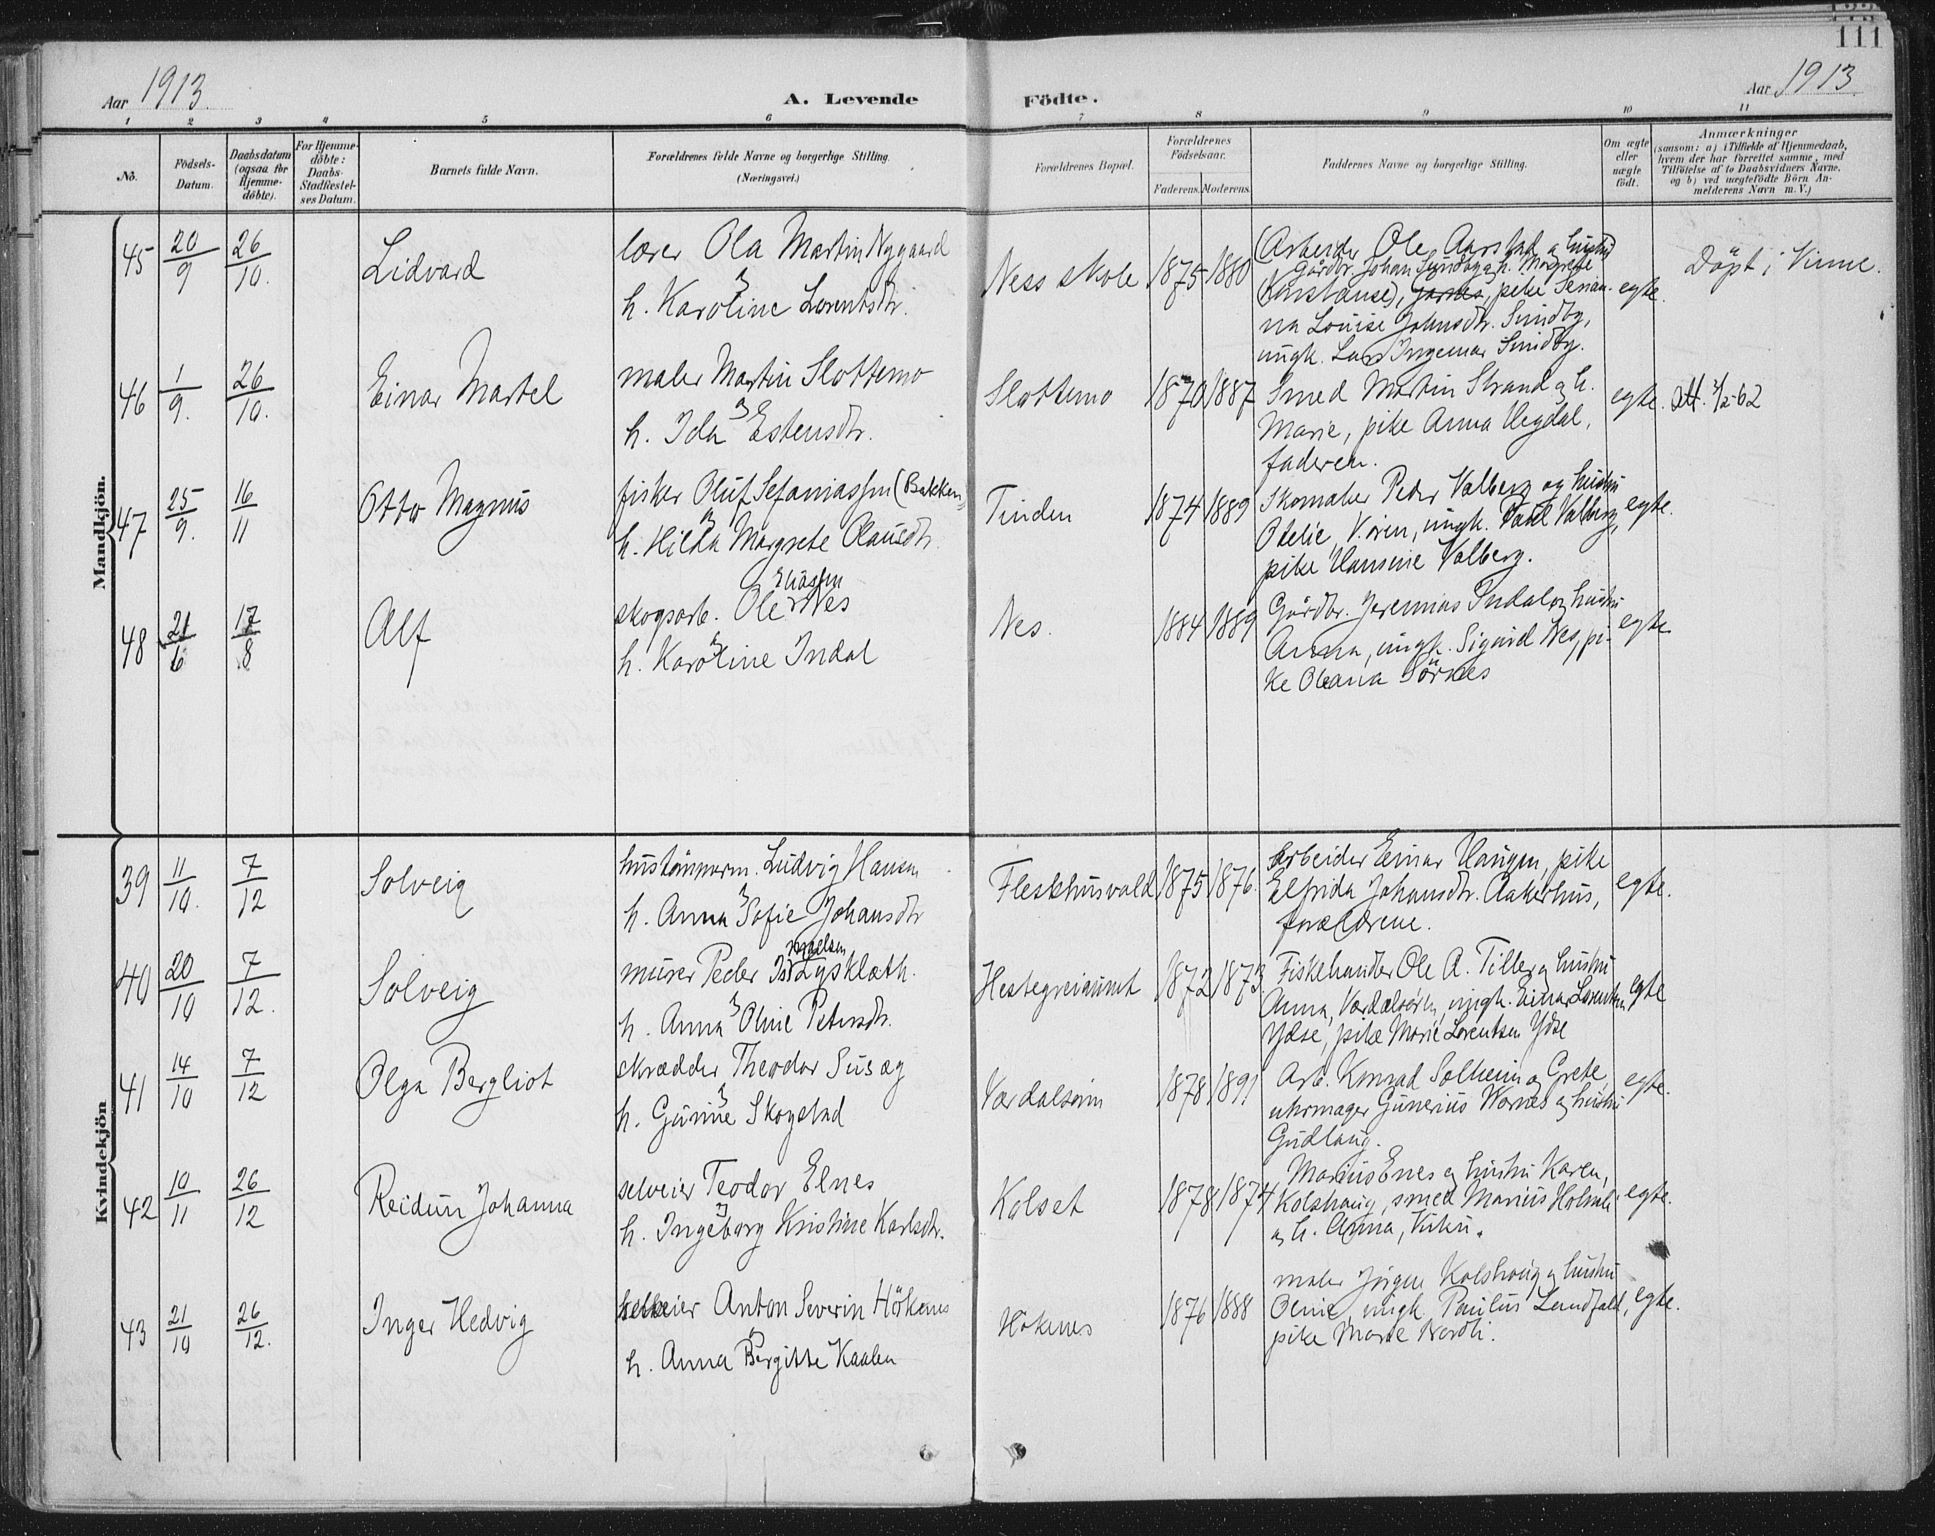 111
Aar 1913.
A. Levende
Födte.
Aar 1913.
1 2 3 4 5 6 7 8 9 10 11
No.
Födsels-
Datum.
Daabsdatum
(ogsaa for
Hjemme-
döbte).
For Hjemme-
döbte:
Daabs-
Stadfæstel-
ses Datum.
Barnets fulde Navn.
Forældrenes fulde Navne og borgerlige Stilling.
(Næringsvei.)
Forældrenes Bopæl.
Forældrenes
Födselsaar.
Faderens. Moderens.
Faddernes Navne og borgerlige Stilling.
Om ægte
eller
uægte
födt.
Anmærkninger
(saasom: a) i Tilfælde af Hjemmedaab,
hvem der har forrettet samme, med
Tilföielse af to Daabsvidners Navne.
og b) ved uægtefödte Börn An-
melderens Navn m. V.)
Mandkjön.
45 20/9 26/10. Lidvard
lærer Ola Martin Nygaard
h. Karoline Lorentsdtr.
Ness skole 1875 1880
(Arbeider Ole Aarstad og hustru
Gårdbr. Johan Sundby og h. Margrete
(Konstanse), pike Jenian-
na Louise Johnsdtr. Sundby,
ungk. Lars Ingemar Sundby.
egte.
Döpt i Vinne.
46 1/9. 26/10. Einar Martel
maler Martin Slottemo
h. Ida Estensdtr.
Slottemo 1870 1887
Smed Martin Strand og h.
Marie, pike Anna Uegdal,
faderen.
egte. att. 1/2-62
47 25/9. 16/11 Otto Magnus
fisker Oluf Sefaniassen (Bakken)
h. Hilda Margrete Olausdtr.
Tinden 1874 1889
Skomaker Peder Valberg og hustru
Otelie, V.ören, ungk. Paul Valberg,
pike Hansine Valberg.
egte.
48 21/6 17/8 Alf
Eliassen
skogsarb. Ole Nes
h. Karoline Indal
Nes. 1884 1889
Gårdbr. Jeremias Indal og hustru
Anna, ungk. Sigurd Nes, pi-
ke Oleana Sörnes
egte
Kvindekjön
39 11/10. 7/12 Solveig
hustömmerm. Ludvig Hansen
h. Anna Sofie Johansdtr
Fleskhusvald 1875 1876.
Arbeider Einar Haugen, pike
Elfrida Johansdtr. Aakerhus,
forældrene.
egte.
40 20/10 7/12. Solveig
murer Peder Lysklæth.
h. Anna Oline Petersdtr.
Hestegreiaunet 1872 1873.
Fiskehandler Ole A. Tiller og hustru
Anna, Værdalsören, ungk. Einar Lorentsen
Ydse, pike Marie Lorentsen Ydse
egte
41 14/10 7/12 Olga Bergliot
skrædder Theodor Susæg
h. Gunne Skogstad
Værdalsören 1878 1891
Arb. Konrad Solheim og Grete,
uhrmager Gunerius Wornes og hustru
Gudlaug.
egte.
42 10/11 26/12 Reidun Johanna
selveier Teodor Elnes
h. Ingeborg Kristine Karlsdtr.
Kolset 1878 1874
Marius Enes og hustru Karen,
Kolshaug, smed Marius Holmli
og h. Anna, Vuku.
egte.
43 21/10 26/12. Inger Hedvig
selveier Anton Severin Hökenes
h. Anna Bergitte Kaalen
Hökenes 1876 1888
maler Jörgen Kolshaug og hustru
Oline, ungk. Paulus Lundfald,
pike Marie Nordli.
egte.